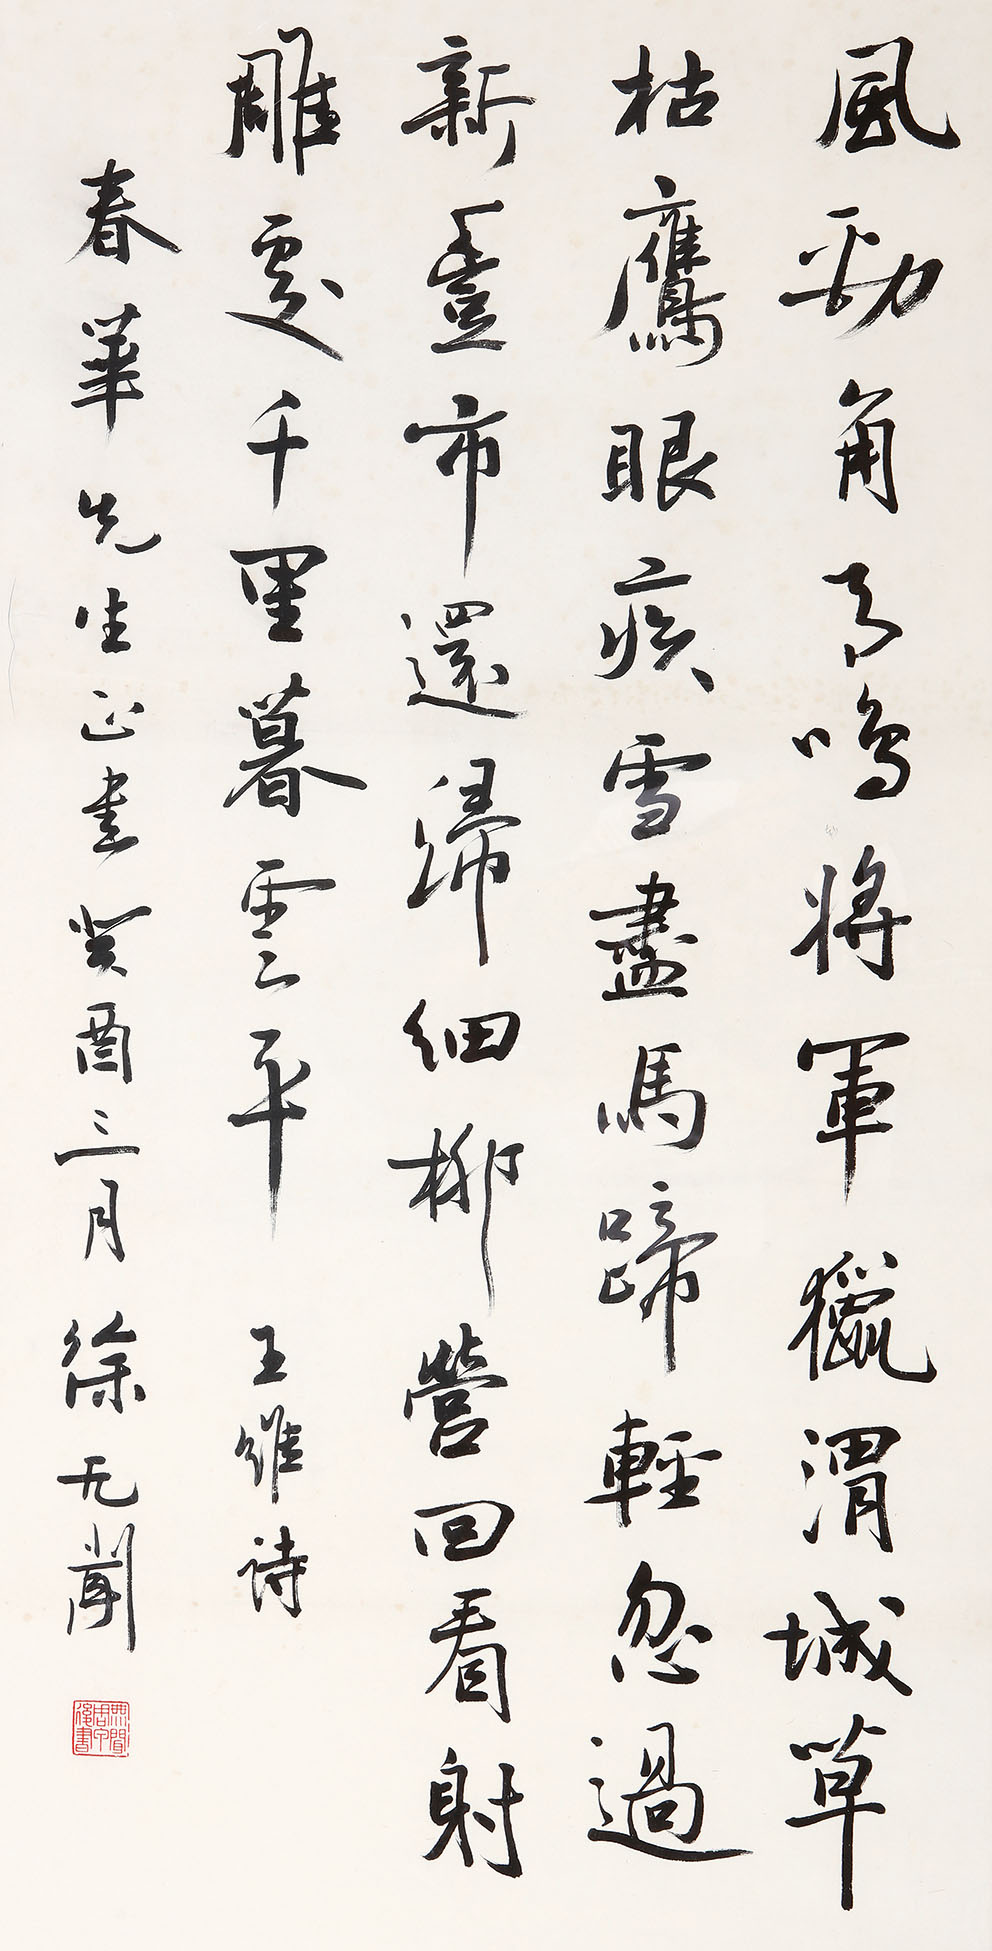 風勁角弓鳴將軍獵渭城草
枯鷹眼疾雪盡馬蹄輕忽過
新豐市還歸細柳營回看射
雕處千里暮雲平 王維詩
春華先生正書癸酉三月 徐无聞
無聞周甲後書